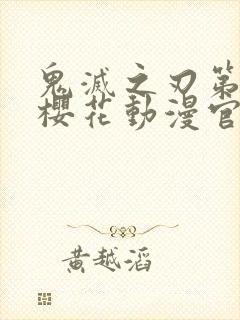 鬼滅之刃第
櫻花動漫官
黃越滔